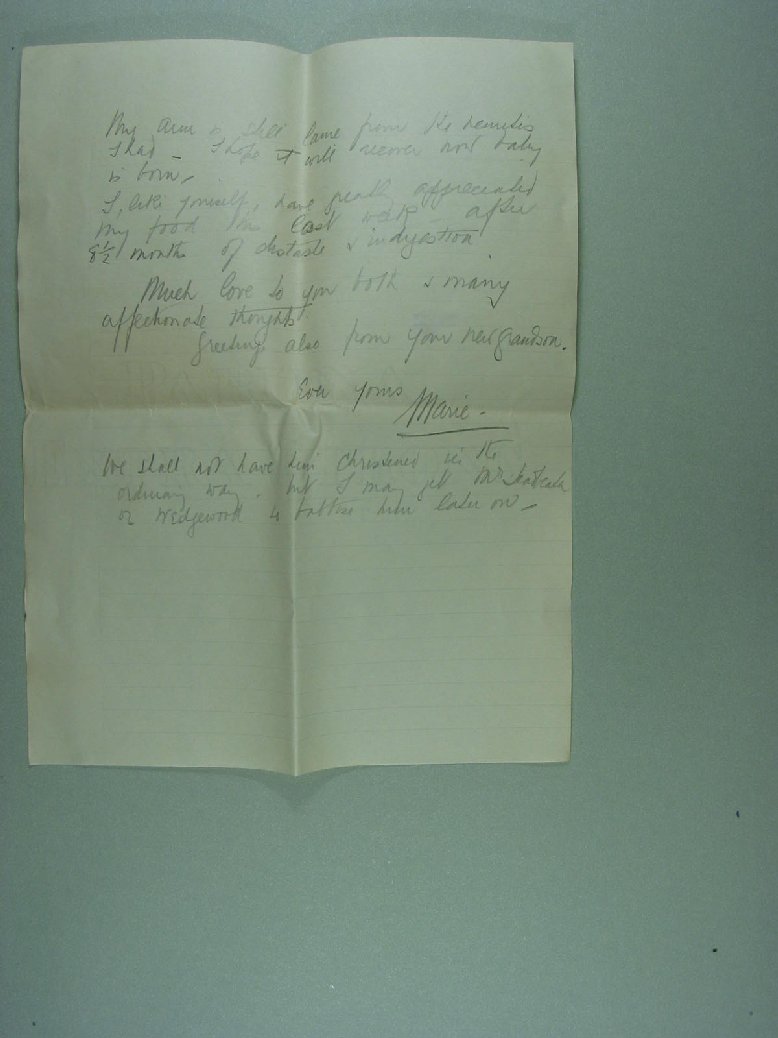 My arm is still lame from the neuritis
I had – I hope it will recover now baby
is born –
I, like yourself, have greatly appreciated
my food this last week – after
8½ months of distaste & indigestion
Much love to you both & many
affectionate thoughts
Greetings also from your new grandson.
Ever yours
Marie –
We shall not have him christened in the
ordinary way. but I may get Mr
or Wedgewood to baptise him later on –